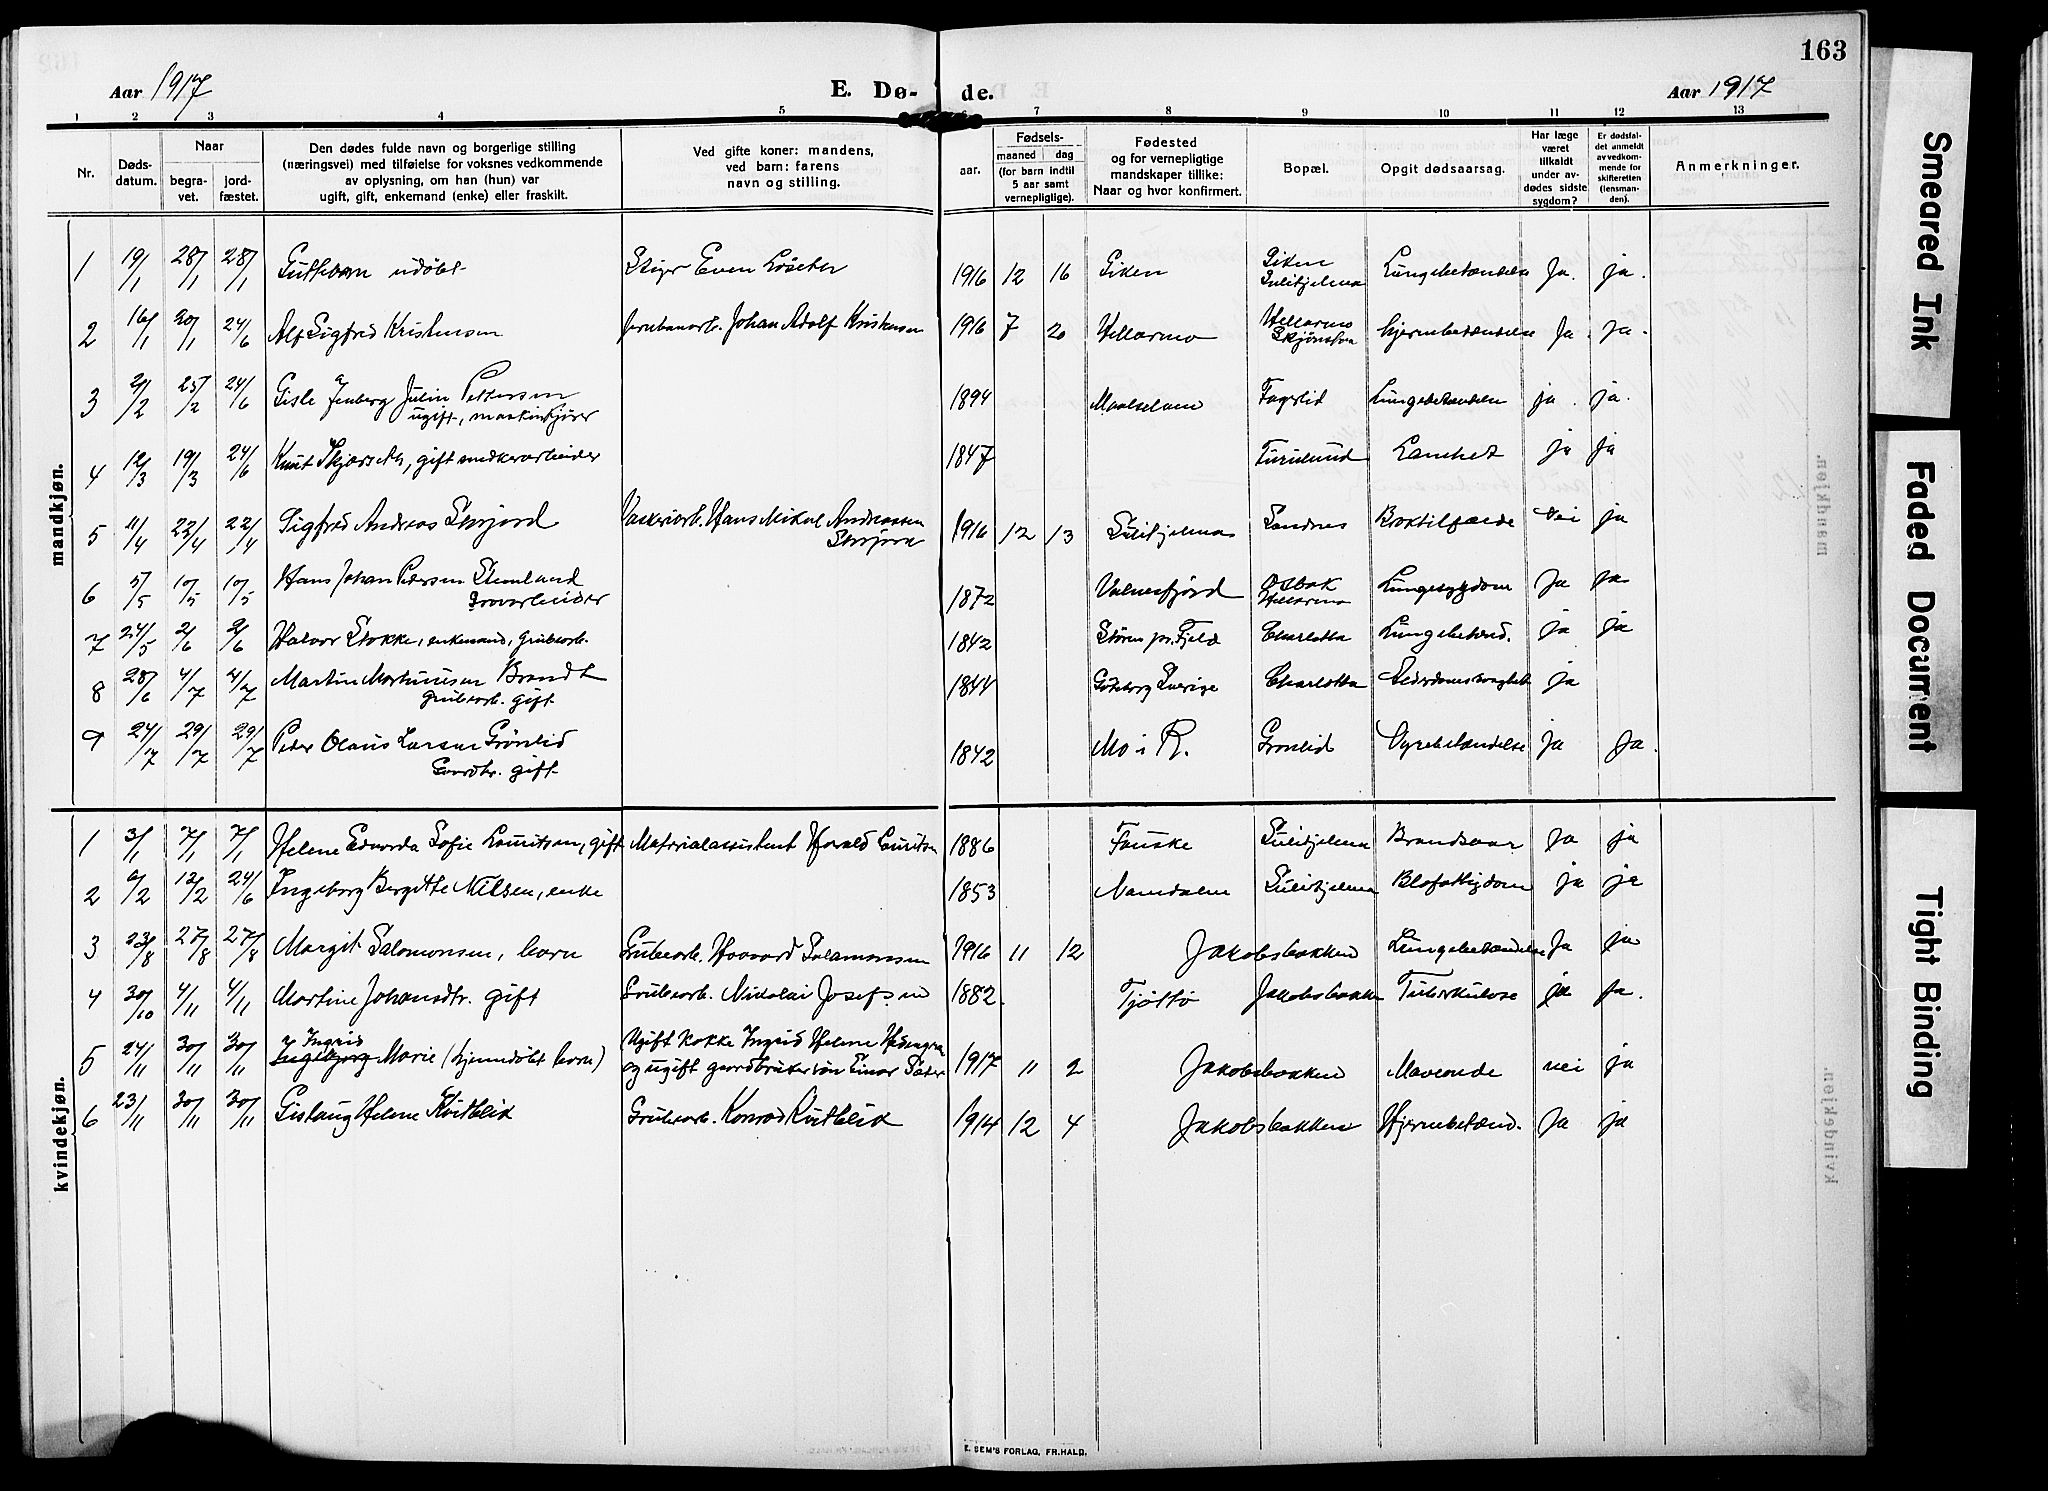 163
Aar 1917
E. Dø- de.
Aar 1917
1 2 3 4 5 7 8 9 10 11 12 13
Nr.
Døds-
datum.
Naar
begra-
vet.
jord-
fæstet.
Den dødes fulde navn og borgerlige stilling
(næringsvei) med tilføielse for voksnes vedkommende
av oplysning, om han (hun) var
ugift, gift, enkemand (enke) eller fraskilt.
Ved gifte koner: mandens,
ved barn: farens
navn og stilling.
Fødsels-
aar.
maaned
dag
(for barn indtil
5 aar samt
vernepligtige).
Fødested
og for vernepligtige
mandskaper tillike:
Naar og hvor konfirmert.
Bopæl.
Opgit dødsaarsag.
Har læge
været
tilkaldt
under av-
dødes sidste
sygdom?
Er dødsfal-
det anmeldt
av vedkom-
mende for
skifteretten
(lensman-
den).
Anmerkninger.
mandkjøn.
1 19/1 28/1 28/1 Guttbarn udøbt Stiger Even Løseter 1916 12 16 Giken Giken Lungebetændelse Ja. ja.
Sulitjelma
2 16/1 20/1 24/6 Alf Sigfred Kristensen Jernbanearb. Johan Adolf Kristensen 1916 7 20 Hellarmo Hellarmo hjernebetændelse Ja. ja.
3 2/2 25/2 24/6 Gisle Julin Pettersen 1894 Maalselven Fagerlid Lungebetændelse ja. ja.
ugift, maskinkjører
4 12/3 19/3 24/6 Knut Skjærseth, gift snekkerarbeider 1847 Furulund Lamhet ja ja
5 11/4 22/4 22/4 Sigfred Andreas Skrjord Vaskeriarb. Hans Mikal Andreassen 1916 12 13 Sulitjelma Sandnes Broktilfælde Nei ja
Skrjord
6 5/5 10/5 10/5 Hans Johan Pedersen Stemland 1872 Valnesfjord Lungesygdom Ja ja
Hellarmo
7 24/5 2/6 2/6 Halvor Stokke, enkemand, grubearb. 1842 Støren pr. Fjeld Charlotta Lungebetænd. ja ja
8 28/6 4/7 4/7 Martin Martinusen Brandt 1844 Gøteborg Sverige Charlotta Alderdomssvaghet ja
Grubearb. gift
9 24/7 29/7 29/7 Peder Olaus Larsen Grønlid 1842 Mo i R. Grønlid Nyrebetændelse ja Ja.
Gaardbr. gift
kvindekjøn.
1 3/1 7/1 7/1 Helene Edvarda Sofie Lauritsen, gift Materialassistent Harald Lauritsen 1886 Fauske Sulitjelma Brandsaar Ja ja
2 6/2 12/2 24/6 Ingeborg Bergitte Nilsen, enke 1853 Namdalen Sulitjelma Blofattigdom ja ja
3 23/8 27/8 27/8 Margit Salomonsen, barn Grubearb. Haavard Salamonsen 1916 11 12 Jakobsbakken Lungebetændelse Ja ja
4 30/10 4/11 4/11 Martine Johansdtr. gift Grubearb. Nikolai Josefsen 1882. Tjøtto Jakobsbakken Tuberkulose ja Ja.
5 24/11 30/11 30/11 Ingrid Ugift kokke Ingrid Helene 1917 11 2 Jakobsbakken Maveonde nei ja
Ingebjorg Marie (hjemdøbt barn) og ugift gaardbrukersøn Einar
6 23/11 30/11 30/11 Gislaug Helene Kvitblik Grubearb. Konrad Kvitblik 1914 12 4 Jakobsbakken Hjernebetænd. Ja ja
E. SEM'S FORLAG, FR.HALD.
Smeared Ink
Faded Document
Tight Binding